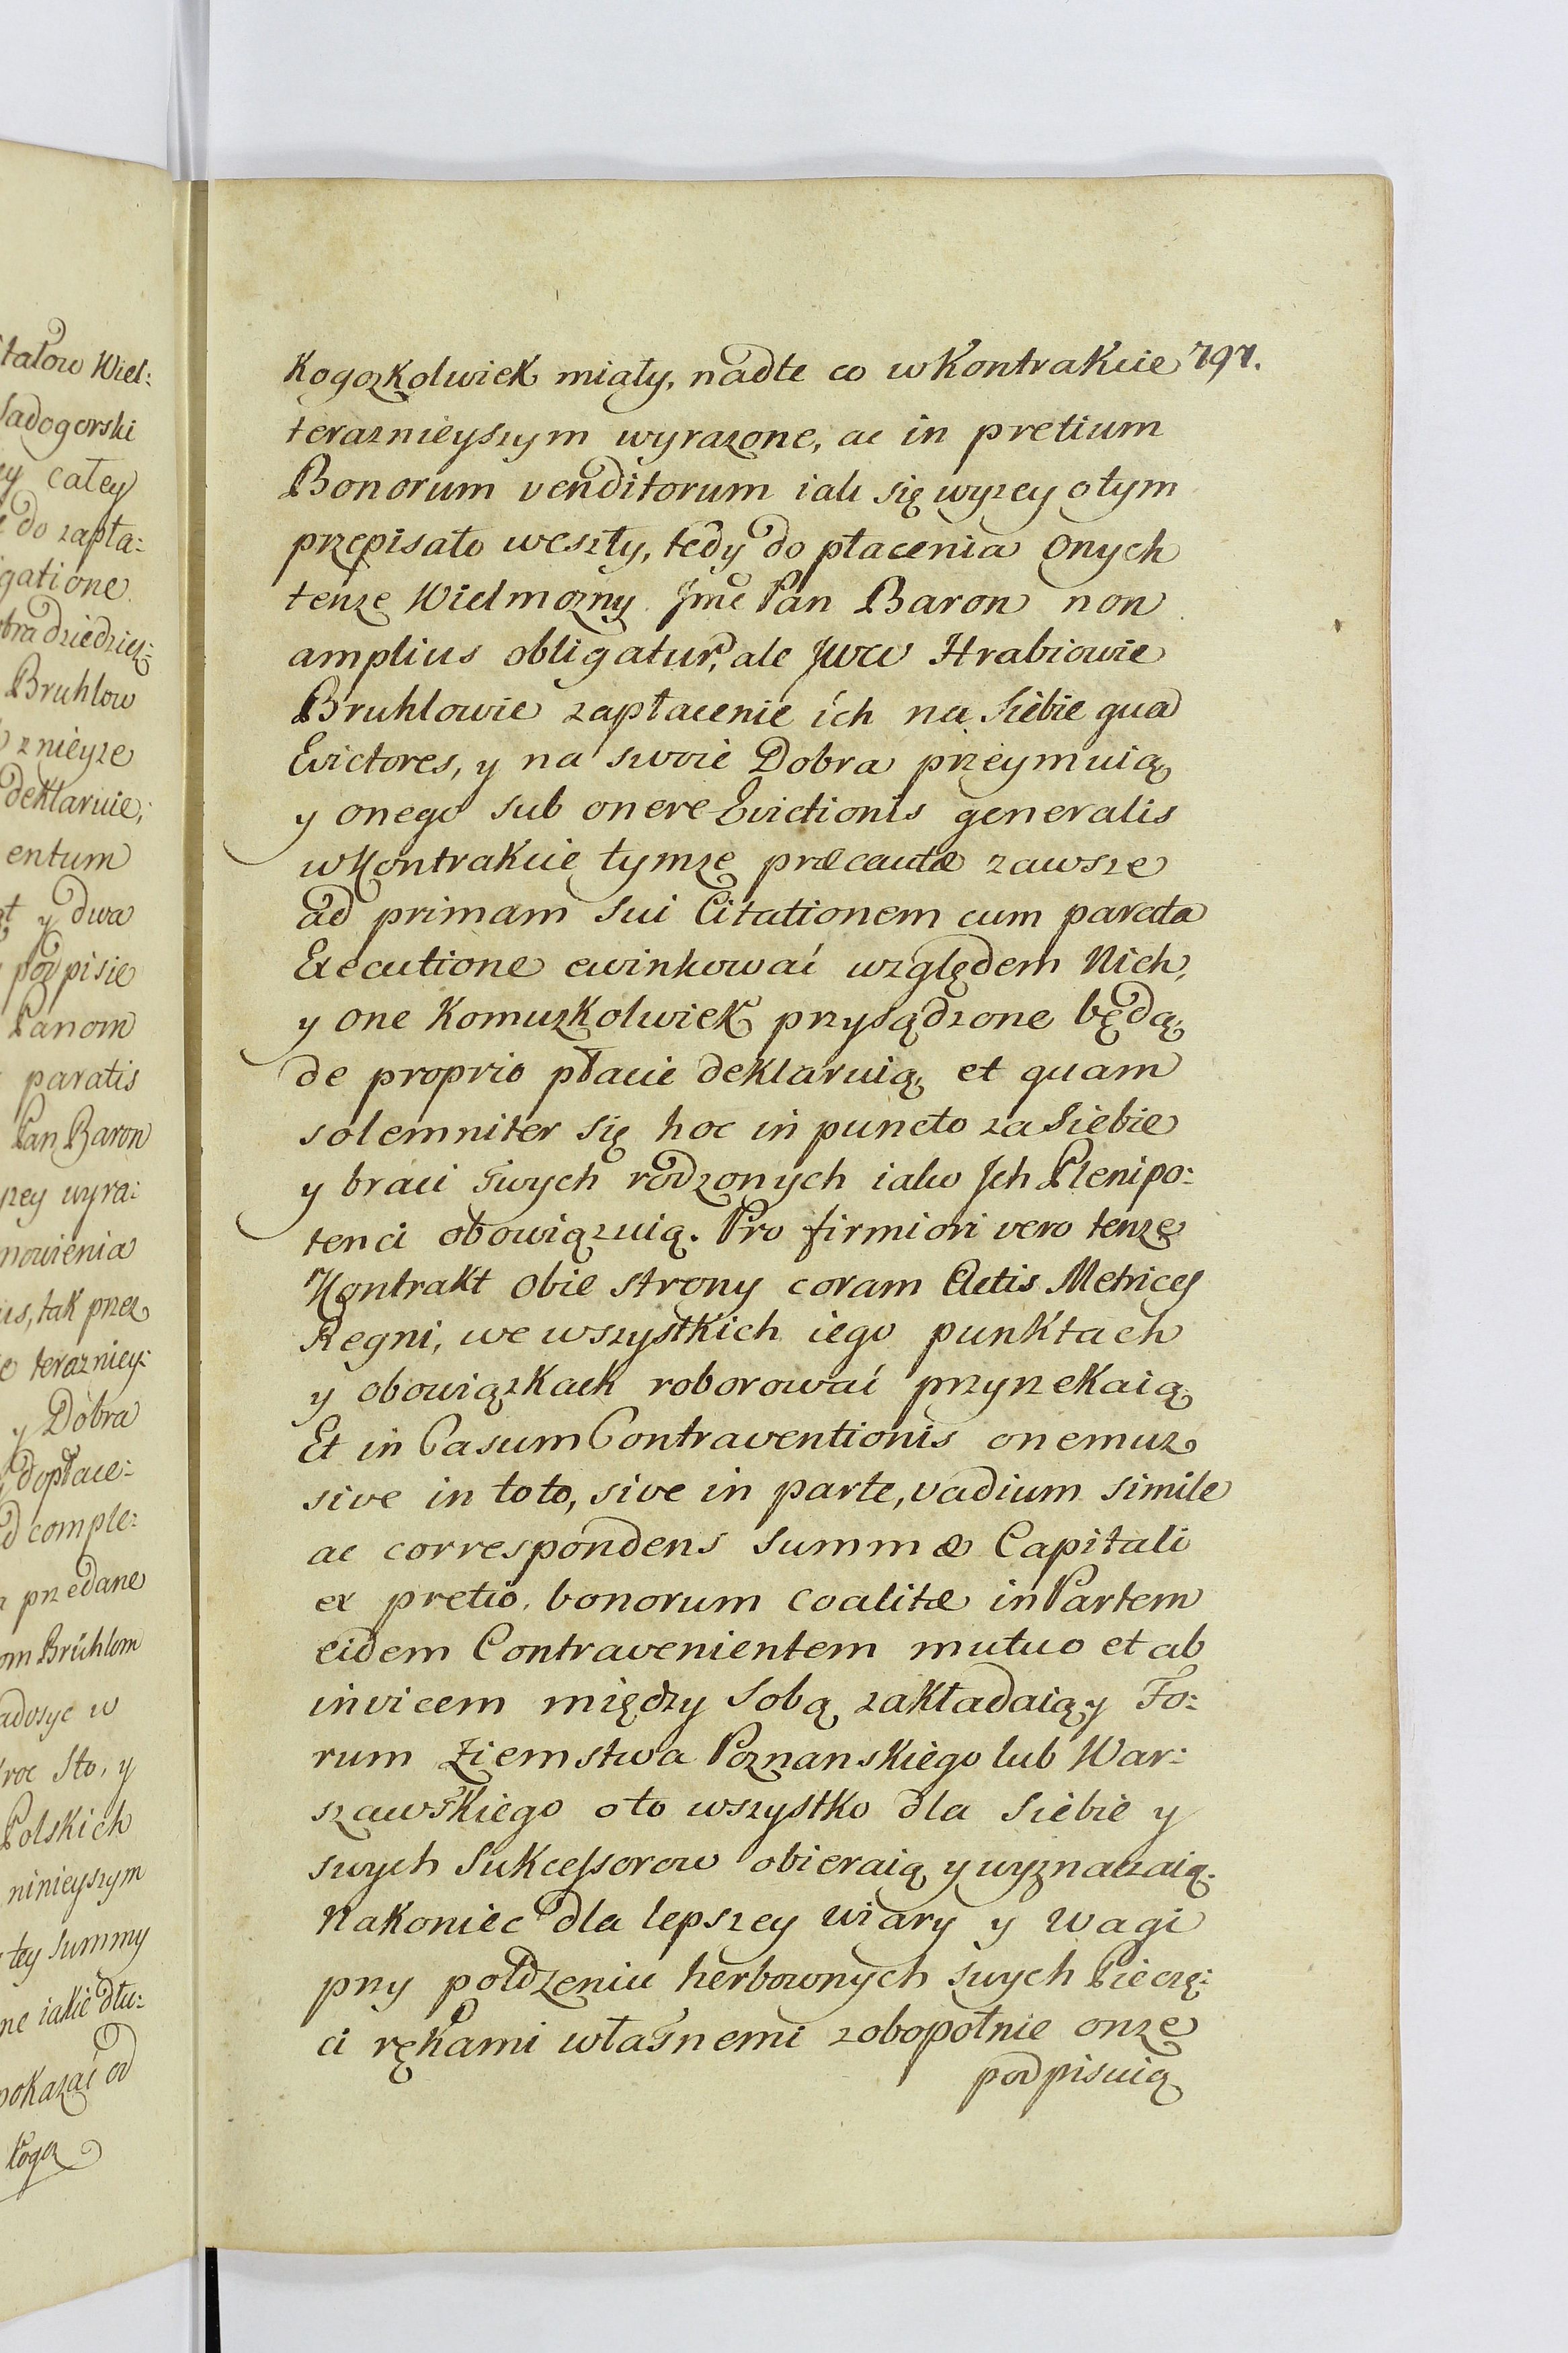 791.
Kogozkolwiek miały, nadte co w Kontrakcie
teraznieyszym wyrazone, ac in pretium
Bonorum venditorum iak się wyzey o tym
przepisało weszły, tedy do płacenia onych
tenze Wielmozny Jmć Pan Baron non
amplius obligatur, ale JWW Hrabiowie
Bruhlowie zapłacenie ich na Siebie qua
Evictores, y na swoie Dobra przeymuią
y onego sub onere Evictionis generalis
w Kontrakcie tymze præcautæ zawsze
ad primam sui Citationem cum parata
Executione ewinkować względem Nich,
y one Komuzkolwiek przysądzone będą
de proprio płacić deklaruią, et quam
solemniter się hoc in puncto za Siebie
y braci swych rodzonych iako Jch Plenipo:
tenci obowiązuią. Pro firmiori vero tenze
Kontrakt obie strony coram Actis Metrices
Regni, we wszystkich iego punktach
y obowiązkach roborować przyrzekaią
Et in Casum Contraventionis onemuz
sive in toto, sive in parte, vadium simile
ac correspondens Summæ Capitali
ex pretio bonorum coalitæ in Partem
eidem Contravenientem mutuo et ab
invicem między Sobą zakładaią, y Fo:
rum Ziemstwa Poznanskiego lub War:
szawskiego o to wszystko dla Siebie y
swych Sukcessorow obieraią y wyznaczaią.
Nakoniec dla lepszey wiary y wagi
przy połdzeniu herbownych swych Pieczę:
ci rękami własnemi zobopolnie onze
podpisuią
Wiel:
Sadogorski
całey
do zapła:
Bruhlow
deklaruie,
entum
y dwa
podpisie
Panom
paratis
Pan Baron
wyra:
tak przez
terazniey:
y Dobra
dopłace:
comple:
przedane
Brühlom
w
Sto, y
Polskich
ninieyszym
tey Summy
iakie dłu:
pokazać od